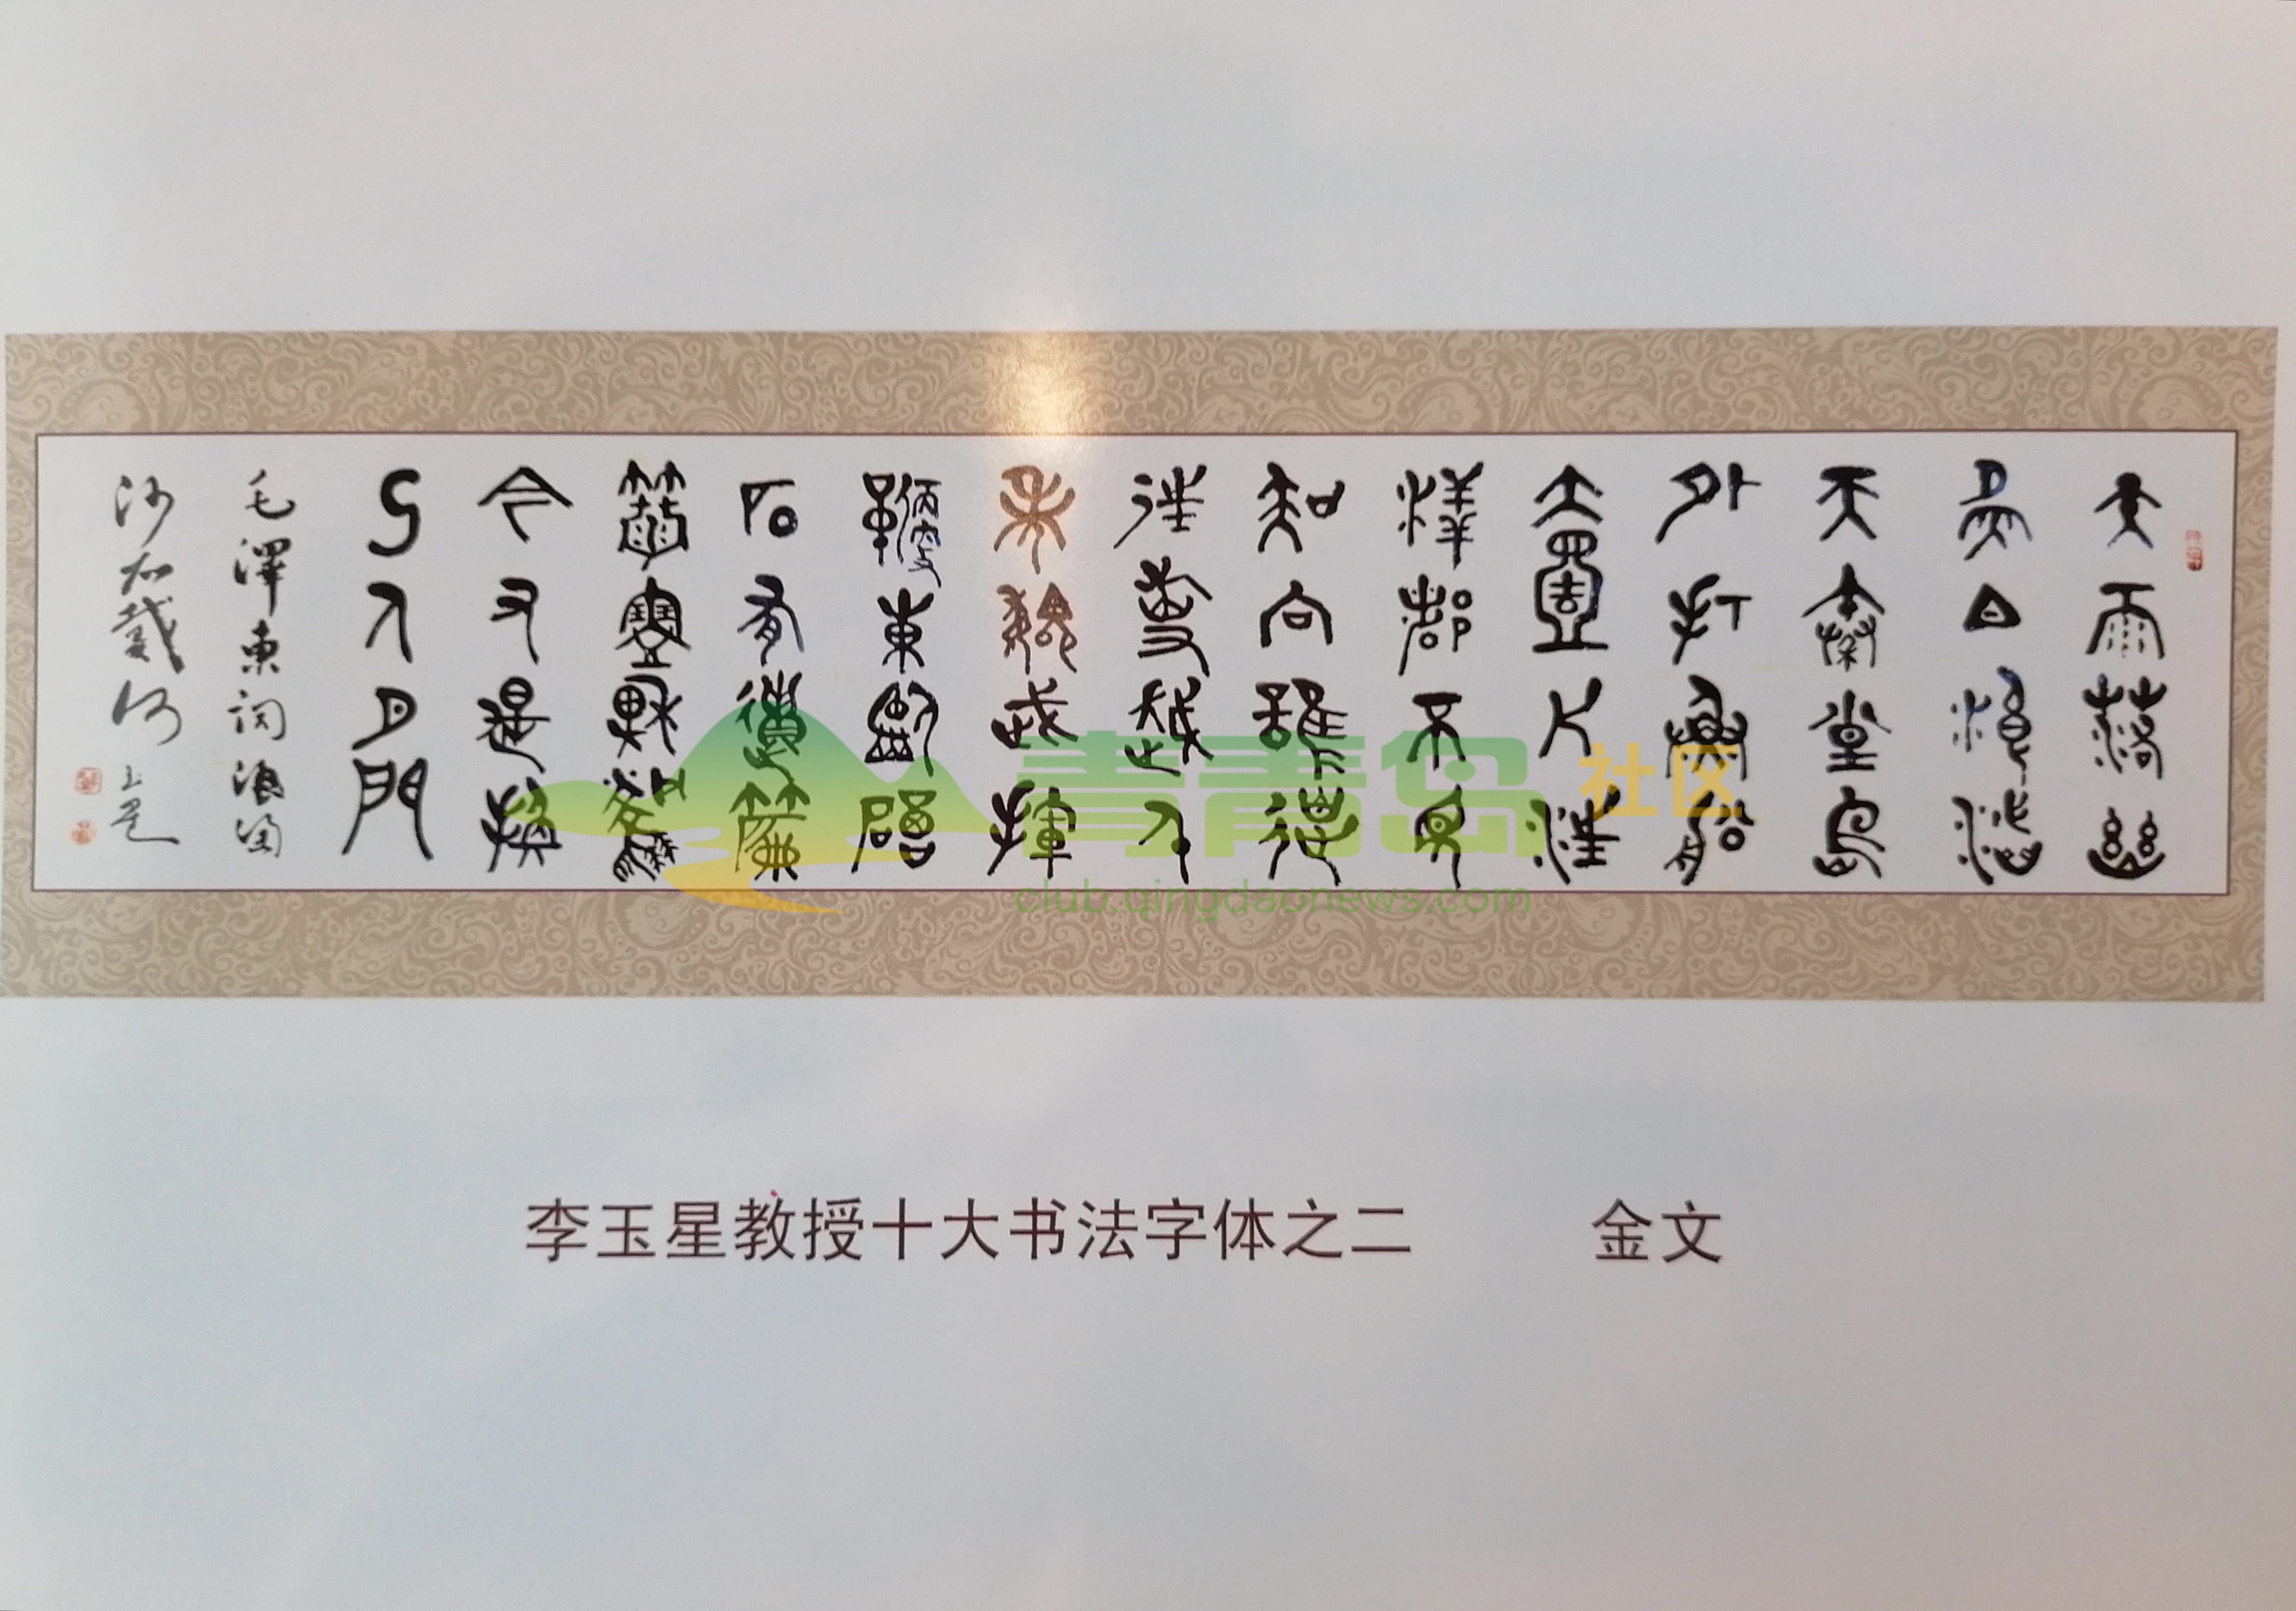 大雨落幽
燕白浪滔
天秦皇島
外打魚船
壹片汪
洋都不見
知向誰邊
往事越千
年魏武揮
鞭東臨碣
石有遺篇
蕭瑟秋風
今又是換
了人間
毛澤東词浪淘
沙北戴河 玉星
青青岛社区
club.qingdaonews.com
李玉星教授十大书法字体之二 金文